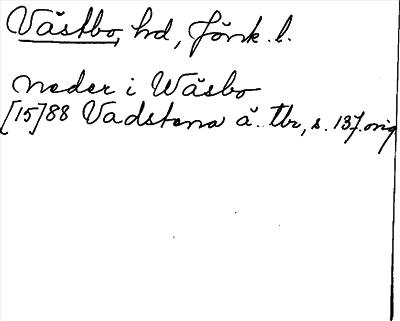 Västbo, hd, Jönk. l.
neder i Wäsbo
[15]88 Vadstena ä. tbr, s. 137. orig